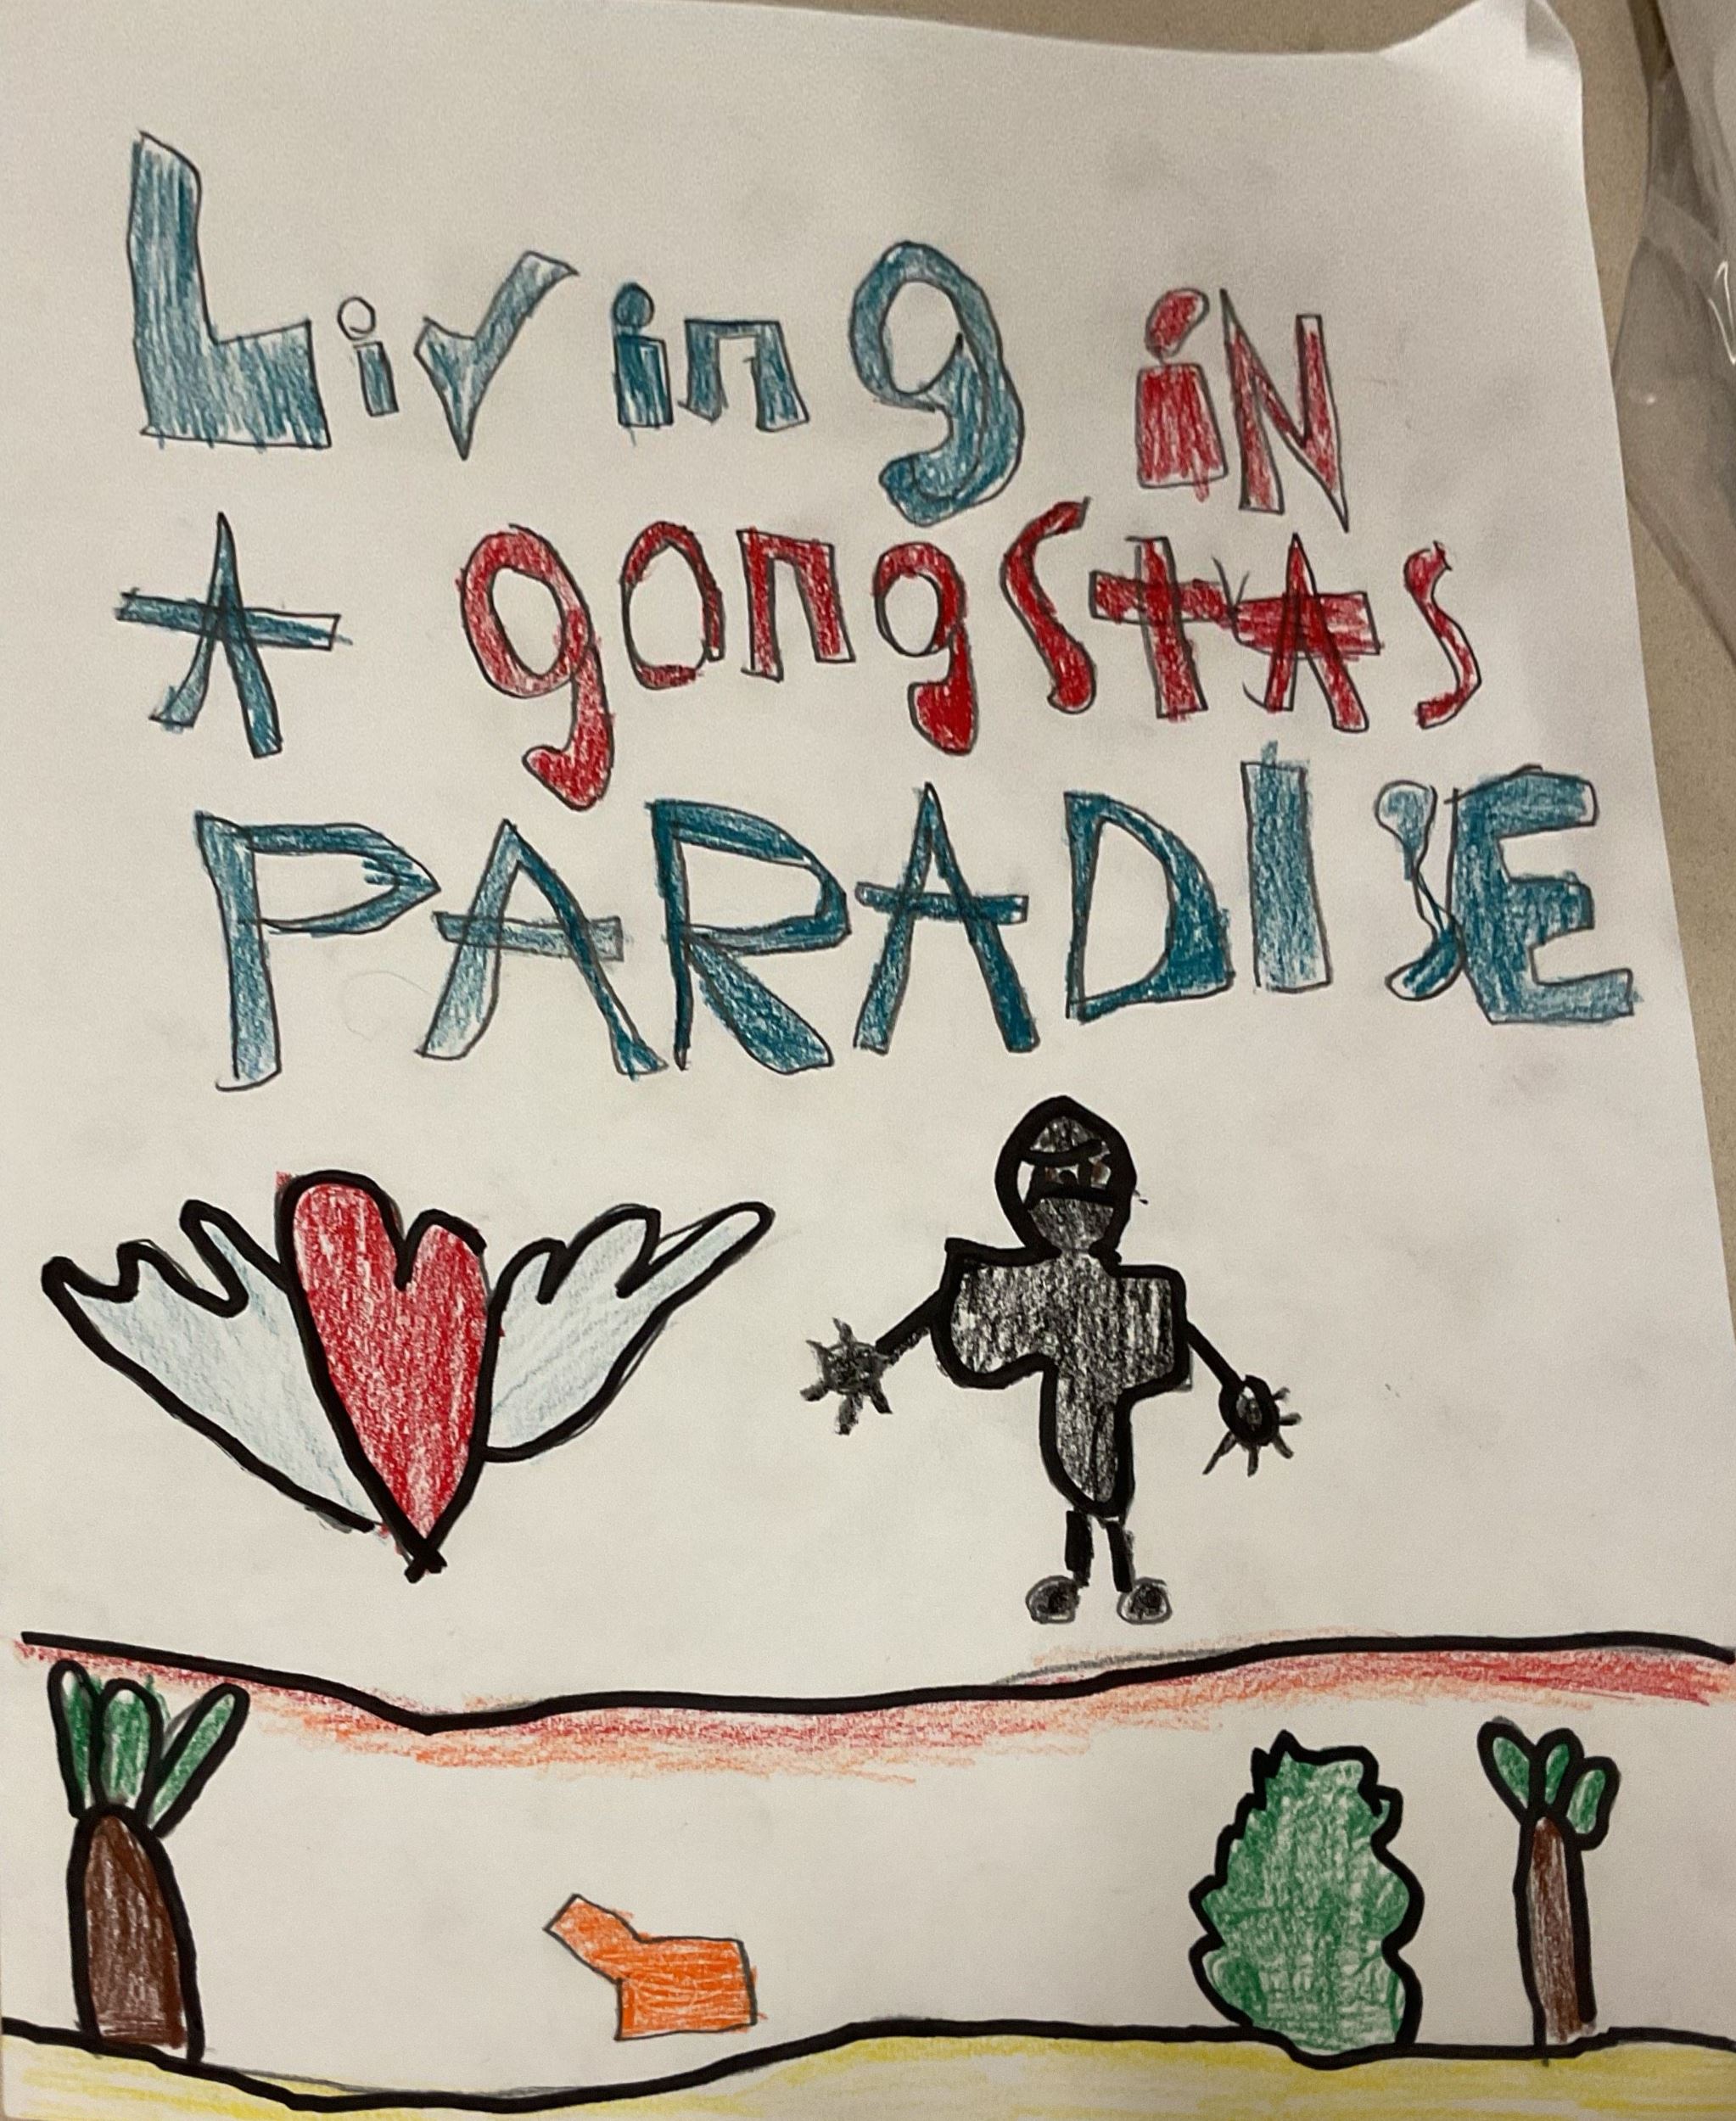 Living iN
A gangstAs
PARADISE